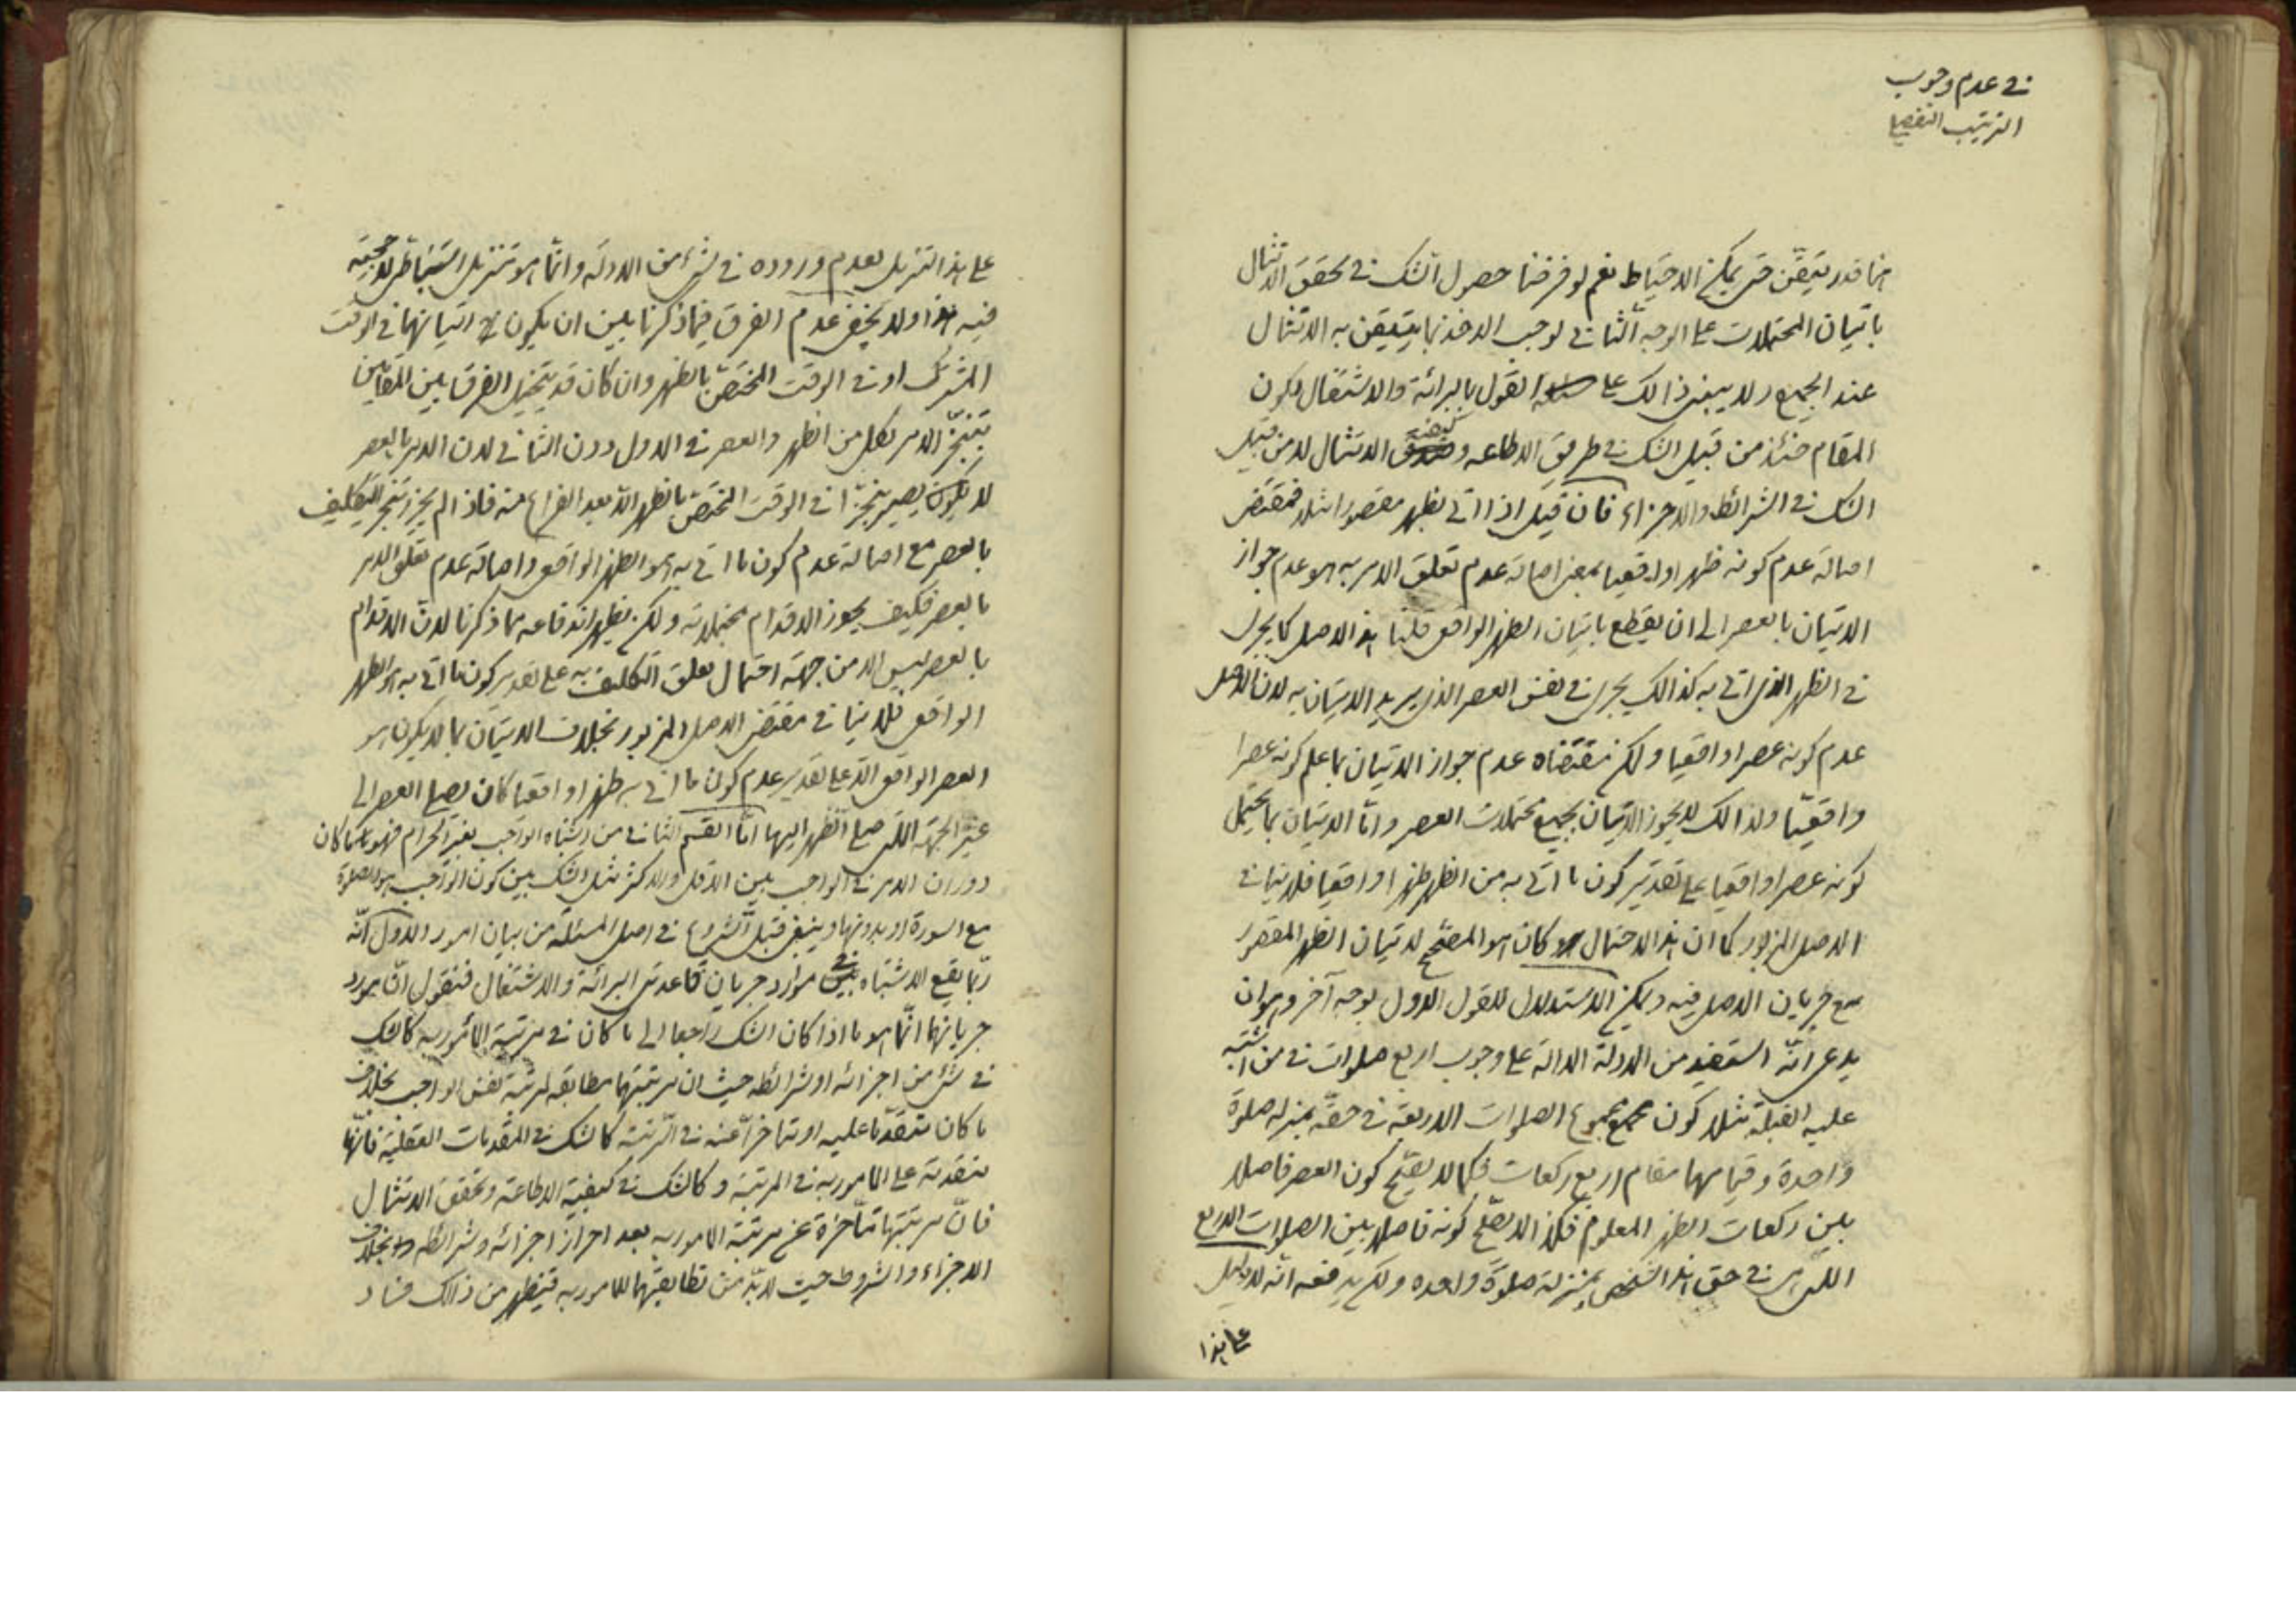 في عدم وجوب
الترتيب التفصيلي
هنا قدر متيقن حتى يمكن الاحتياط نعم لو فرضنا حصول الشك في تحقق الامتثال
باتيان المحتملات على الوجه الثاني لوجب الاخذ بما يتيقن به الامتثال
عند الجميع ولا يبتني ذالك على القول بالبرائة والاشتغال لكون
المقام حينئذ من قبيل الشك في طريق الاطاعه وكيفية الامتثال لا من قبيل
الشك في الشرائط والاجزاء فان قيل اذا اتى بظهر مقصورا مثلا فمقتضى
اصالة عدم كونه ظهرا واقعيا بمعنى اصالة عدم تعلق الامر به هو عدم جواز
الاتيان بالعصر الى ان يقطع باتيان الظهر الواقعي قلنا هذا الاصل كما يجرى
في الظهر الذى اتى به كذالك يجرى في نفس العصر الذى يريد الاتيان به لان الاصل
عدم كونه عصرا واقعيا ولكن مقتضاه عدم جواز الاتيان بما علم كونه عصرا
واقعيا ولذالك لا يجوز الاتيان بجميع محتملات العصر واما الاتيان بما يحتمل
كونه عصرا واقعيا على تقدير كون ما اتى به من الظهر ظهرا واقعيا فلا ينافي
الاصل المزبور كما ان هذا الاحتمال كان هو المصحح لاتيان الظهر المقصور
مع جريان الاصل فيه ويمكن الاستدلال للقول الاول بوجه آخر وهو ان
يدعى انه استفيد من الادلة الدالة على وجوب اربع صلوات في من اشتبه
عليه القبلة مثلا كون مجموع الصلوات الاربعة في حقه بمنزله صلوة
واحدة وقيامها مقام اربع ركعات فكما لا يصح كون العصر فاصلا
بين ركعات الظهر المعلوم فكذا لا يصح كونه فاصلا بين الصلوات الاربع
اللتى هى في حق هذا الشخص بمنزلة صلوة واحده ولكن يدفعه انه لا دليل
على هذا
على هذا التنزيل لعدم وروده في شئ من الادلة وانما هو تنزيل استنباطى لا حجية
فيه هذا ولا يخفى عدم الفرق فيما ذكرنا بين ان يكون اتيانهما في الوقت
المشترك او في الوقت المختص بالظهر وان كان قد يتخيل الفرق بين المقامين
بتنجز الامر بكل من الظهر والعصر في الاول دون الثاني لان الامر بالعصر
لا يصير منجزا في الوقت المختص بالظهر الا بعد الفراغ منه فاذا لم يحرز تنجز التكليف
بالعصر مع اصالة عدم كون ما اتى به هو الظهر الواقعي واصالة عدم تعلق الامر
بالعصر فكيف يجوز الاقدام بمحتملاته ولكن يظهر اندفاعه مما ذكرنا لان الاقدام
بالعصر ليس الا من جهة احتمال تعلق التكليف به على تقدير كون ما اتى به هو الظهر
الواقعي فلا ينافي مقتضى الاصل المزبور بخلاف الاتيان بما لا يكون هو
العصر الواقعي الا على تقدير عدم كون ما اتى به ظهرا واقعيا كان يصلي العصر الى
غير الجهة اللتى صلى الظهر اليها اما القسم الثاني من اشتباه الواجب بغير الحرام فهو ما كان
دوران الامر في الواجب بين الاقل والاكثر مثل الشك بين كون الواجب هو الصلوة
مع السورة او بدونها وينبغي قبل الشروع في اصل المسئلة من بيان امور الاول انه
ربما يقع الاشتباه في موارد جريان قاعدتى البرائة والاشتغال فنقول ان مورد
جريانهما انما هو ما اذا كان الشك راجعا الى ما كان في مرتبة المأمور به كالشك
في شئ من اجزائه او شرائطه حيث ان مرتبتهما مطابقه لمرتبة نفس الواجب بخلاف
ما كان متقدما عليه او متاخرا عنه في الرتبة كالشك في المقدمات العقلية فانها
متقدمة على المامور به في المرتبة وكالشك في كيفية الاطاعة وتحقق الامتثال
فان مرتبتها متاخرة عن مرتبة المامور به بعد احراز اجزائه وشرائطه بخلاف
الاجزاء والشروط حيث لابد من تطابقهما للمامور به فيظهر من ذالك فساد